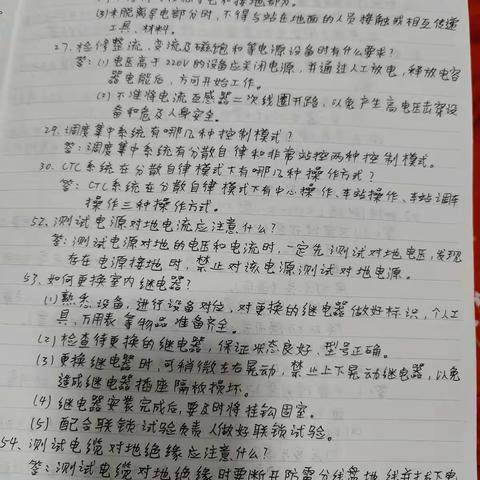 (3)未脱离带电部分时,不得与站在地面的人员接触或相互传递
工具、材料。
27、检修整流、变流及磁饱和等电源设备时有什么要求?
答:(1)电压高于220V的设备应关闭电源,并通过人工放电,释放电容
器电能后,方可开始工作。
(2)不准将电流互感器二次线圈开路,以免产生高电压击穿设
备和危及人身安全。
29、调度集中系统有哪几种控制模式?
答:调度集中系统有分散自律和非常站控两种控制模式。
30、CTC系统在分散自律模式下有哪几种操作方式?
答:CTC系统在分散自律模式下有中心操作、车站操作、车站调车
操作三种操作方式。
52、测试电源对地电流应注意什么?
答:测试电源对地的电压和电流时,一定先测试对地电压,发现
存在电源接地时,禁止对该电源测试对地电源。
53、如何更换室内继电器?
(1)熟悉设备,进行设备对位,对更换的继电器做好标识,个人工
具、万用表等物品准备齐全。
(2)检查待更换的继电器,保证状态良好、型号正确。
(3)更换继电器时,可稍微左右晃动,禁止上下晃动继电器,以免
造成继电器插座隔板损坏。
(4)继电器安装完成后,要及时将挂钩固牢。
(5)配合联锁试验负责人做好联锁试验。
54、测试电缆对地绝缘应注意什么?
答:测试电缆对地绝缘时要断开防雷分线盘地线并拔下电